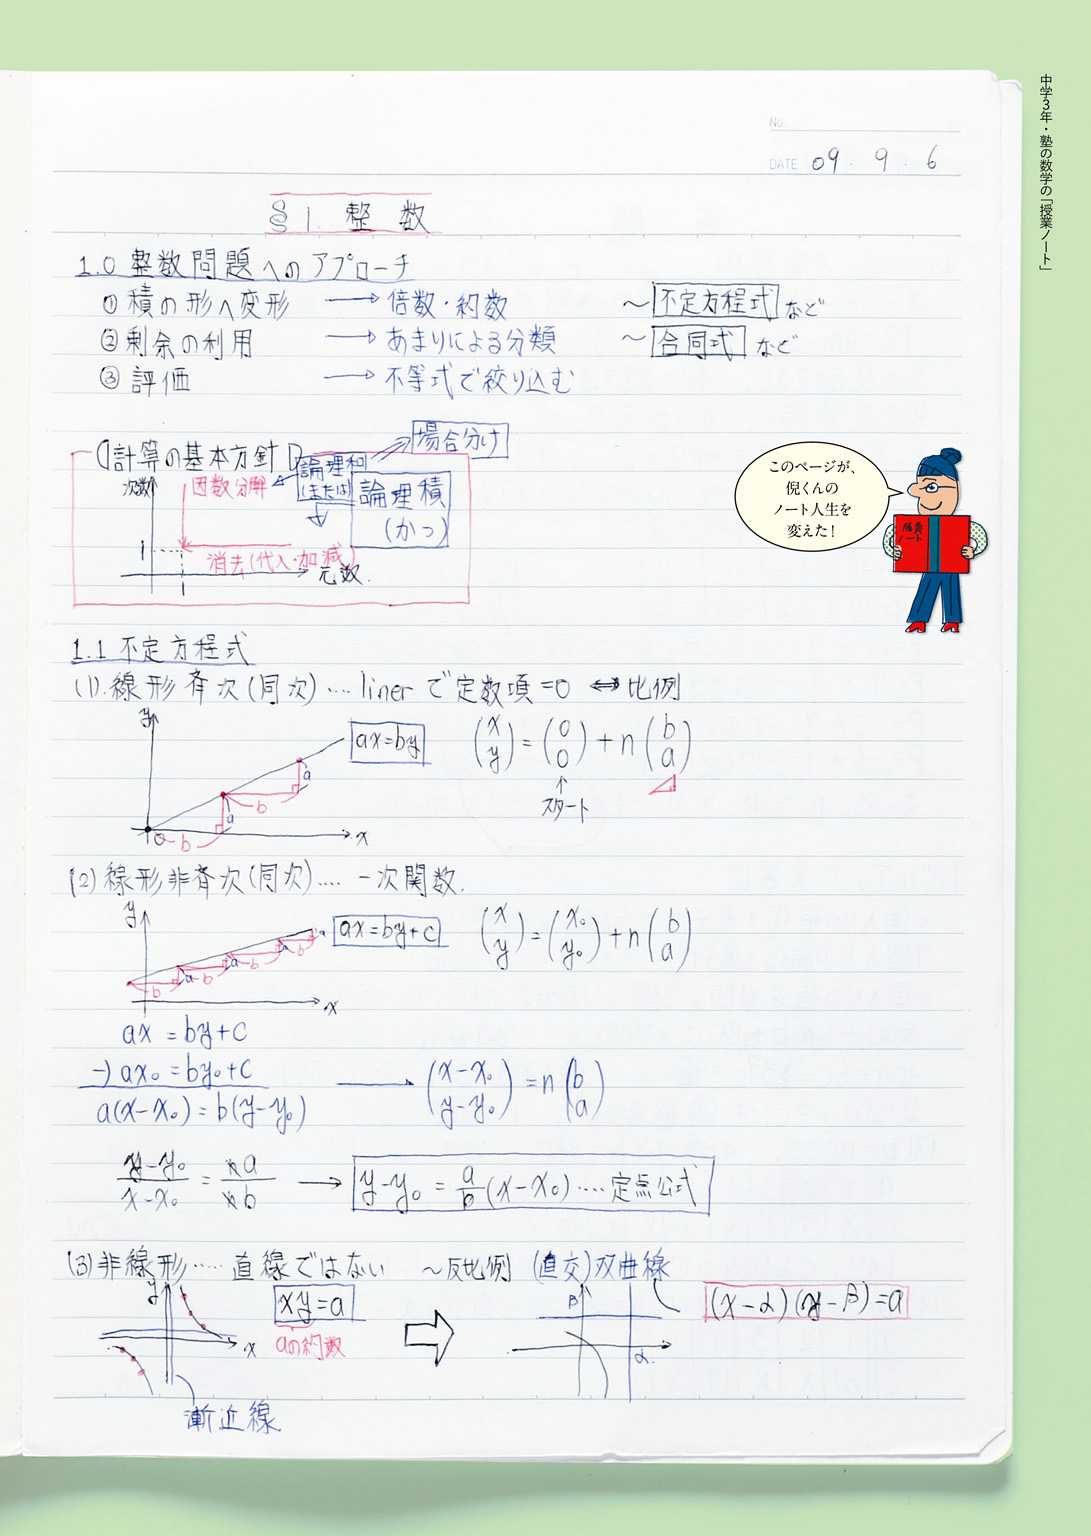 中学3年・塾の数学の「授業ノート」
No.
DATE 09 . 9 . 6
§1. 整数
1.0 整数問題へのアプローチ
① 積の形へ変形 → 倍数・約数 ～ 不定方程式 など
② 剰余の利用 → あまりによる分類 ～ 合同式 など
③ 評価 → 不等式で絞り込む
場合分け
計算の基本方針
論理和
(または)
次数
因数分解
論理積
(かつ)
1
消去(代入・加減)
元数
1
このページが、
倪くんの
ノート人生を
変えた!
勝負
ノート
1.1 不定方程式
(1). 線形斉次(同次) …. linerで定数項=0 ⇔ 比例
y
ax=by
(x y) = (0 0) + n (b a)
↑
スタート
a
b
a
b
0
x
(2) 線形非斉次(同次) …. 一次関数.
y
ax=by+c
(x y) = (x₀ y₀) + n (b a)
a b a b a b a b
x
ax = by+c
-) ax₀ = by₀+c
a(x-x₀) = b(y-y₀)
→ (x-x₀ y-y₀) = n (b a)
y-y₀ / x-x₀ = na / nb → y-y₀ = a/b (x-x₀) …. 定点公式
(3) 非線形 ….. 直線ではない ～ 反比例 (直交)双曲線
y
xy=a
aの約数
x
漸近線
β
α
(x-α)(y-β)=a